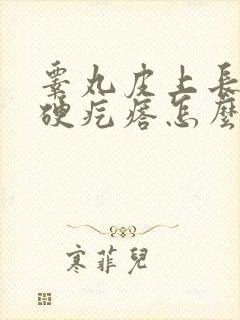 睪丸皮上長
硬疙瘩怎麼
寒菲兒